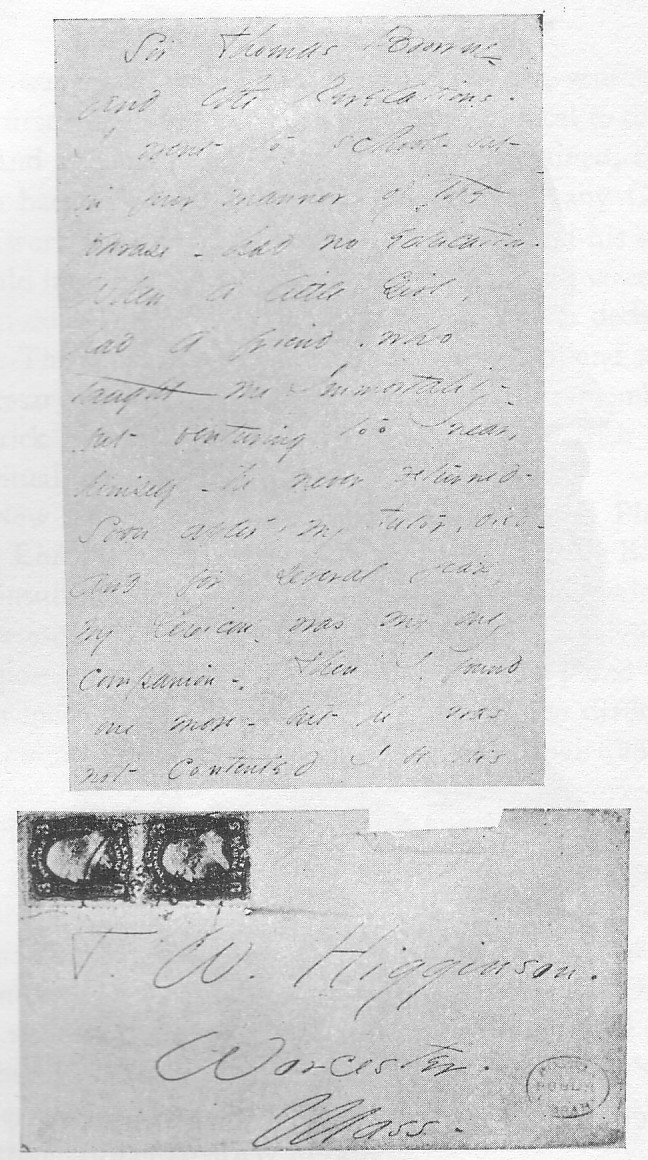 Sir Thomas Browne
and the Revelations.
I went to school - but
in your manner of the
phrase - had no education.
When a little Girl,
had a friend, who
taught me Immortality -
but venturing too near,
himself - he never returned -
Soon after, my Tutor, died -
and for several years,
my Lexicon - was my only
companion - Then I found
one more - but he was
not contented I be his
T. W. Higginson.
Worcester.
Mass -